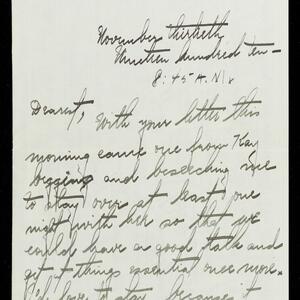 November thirtieth
Nineteen hundred ten —
8:45 A.M.
Dearest,
With your letter this
morning came one from Kay
begging and beseeching me
to stay over at least one
night with her so that we
could have a good talk and
get things essential once more.
I'd love to stay, because it